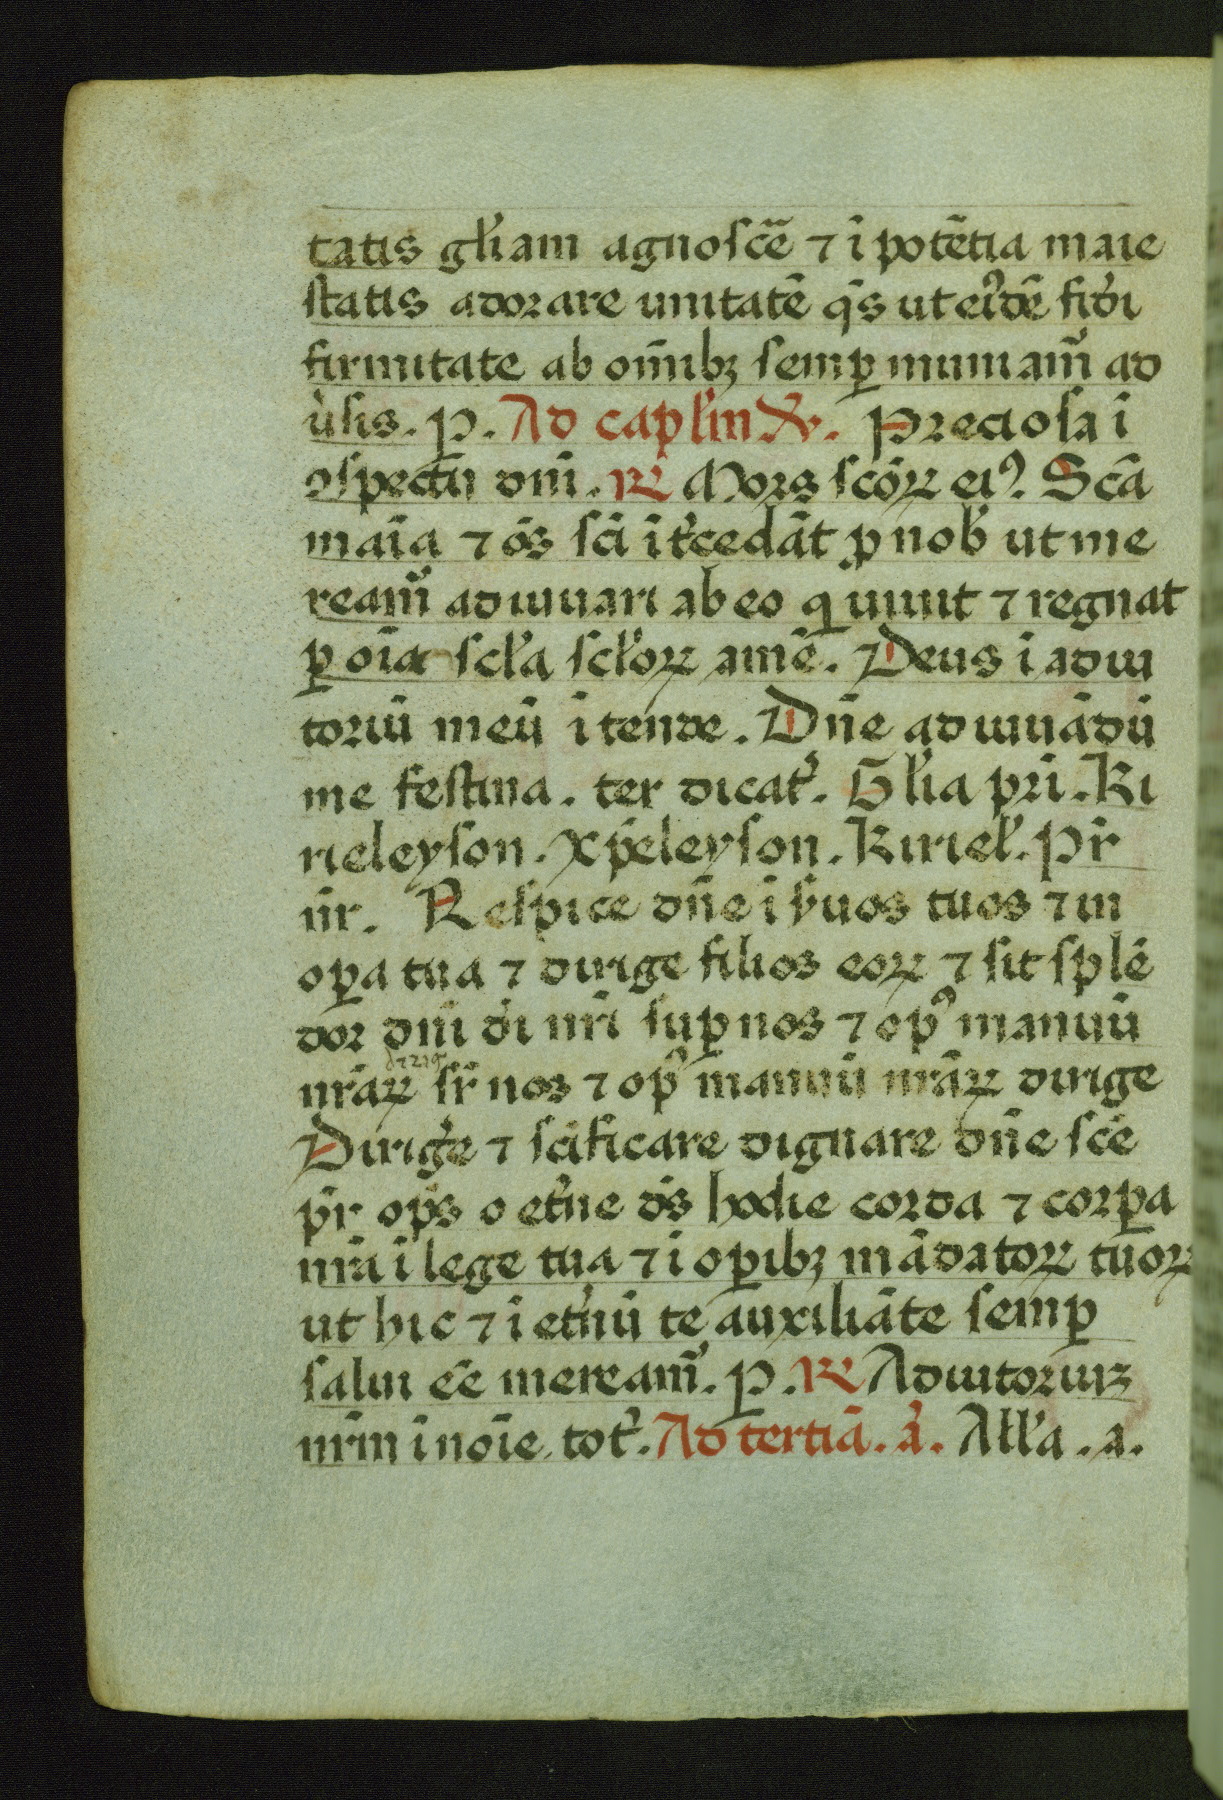 tatis gl̄iam agnoscē ⁊ ī potētia maie
statis adorare unitatē q̄s ut eiꝰdē fid̄i
firmitate ab om̄ibꝫ semꝑ muniam̄ᷣ ad
ūsis. P. Ad capl̄m ℣. Preciosa ī
ꝯspectū dn̄i. ℟ Mors sc̄oꝝ eiꝰ. Sc̄a
maīa ⁊ ōs sc̄i īt̄cedāt ꝓ nob̄ ut me
ream̄ᷣ adiuuari ab eo q̄ uiuit ⁊ regnat
ꝑ oīa scl̄a scl̄oꝝ amē. Deus ī adiu
toriū meū ītende. Dn̄e adiuuādū
me festina. ter dicat̄. Gl̄ia pr̄i. Ki
rieleyson. Xp̄eleyson. Kiriel̄. Pr̄
nr̄. Respice dn̄e ī s̄uos tuos ⁊ in
oꝑa tua ⁊ dirige filios eoꝝ ⁊ sit splē
dor dn̄i dī nr̄i suꝑ nos ⁊ opꝰ manuū
nr̄aꝝ sr̄ nos ⁊ opꝰ manuū nr̄aꝝ dirige
Diriḡe ⁊ sc̄ificare dignare dn̄e sc̄e
pr̄ op̄s o et̄ne d̄s hodie corda ⁊ corꝑa
nr̄a ī lege tua ⁊ ī oꝑibꝫ mādatoꝝ tuoꝝ
ut hic ⁊ ī et̄nū te auxiliāte semꝑ
salui eē meream̄ᷣ. P. ℟ Adiutoriuꝫ
nr̄m ī noīe. tot̄. Ad tertiā. a̅. All̄a. a.